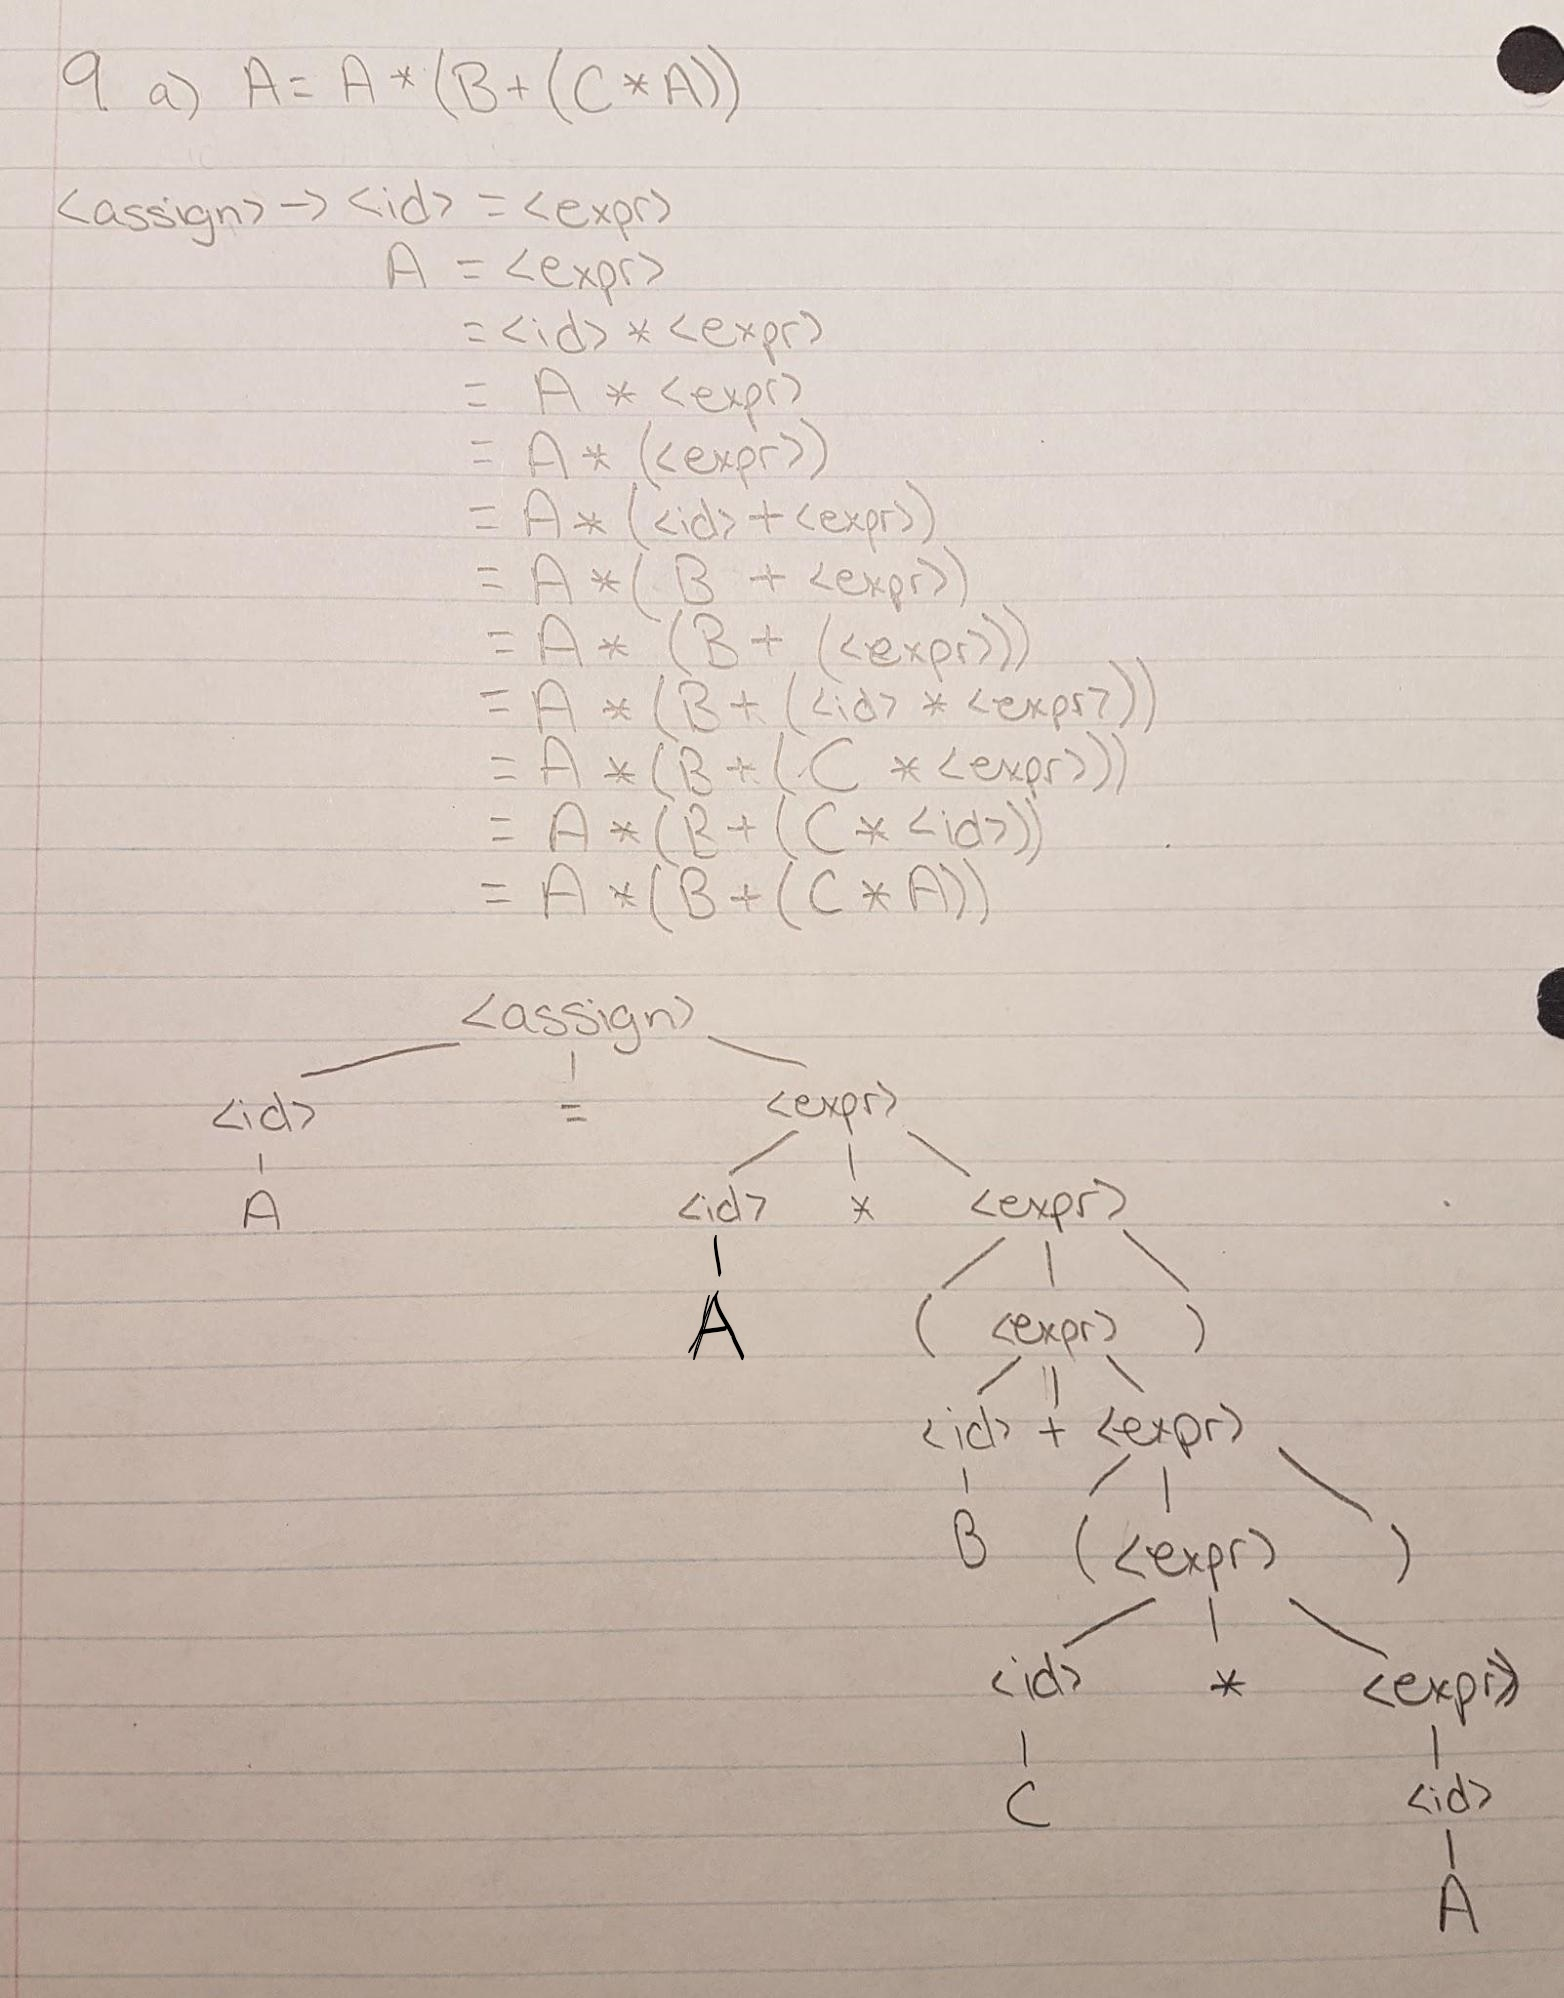 9. a) A = A * (B + (C * A))
<assign> → <id> = <expr>
A = <expr>
= <id> * <expr>
= A * <expr>
= A * (<expr>)
= A * (<id> + <expr>)
= A * ( B + <expr>)
= A * (B + (<expr>))
= A * (B + (<id> * <expr>))
= A * (B + ( C * <expr>))
= A * (B + (C * <id>))
= A * (B + (C * A))
<assign>
<id> = <expr>
A <id> * <expr>
A ( <expr> )
<id> + <expr>
B ( <expr> )
<id> * <expr>
C <id>
A